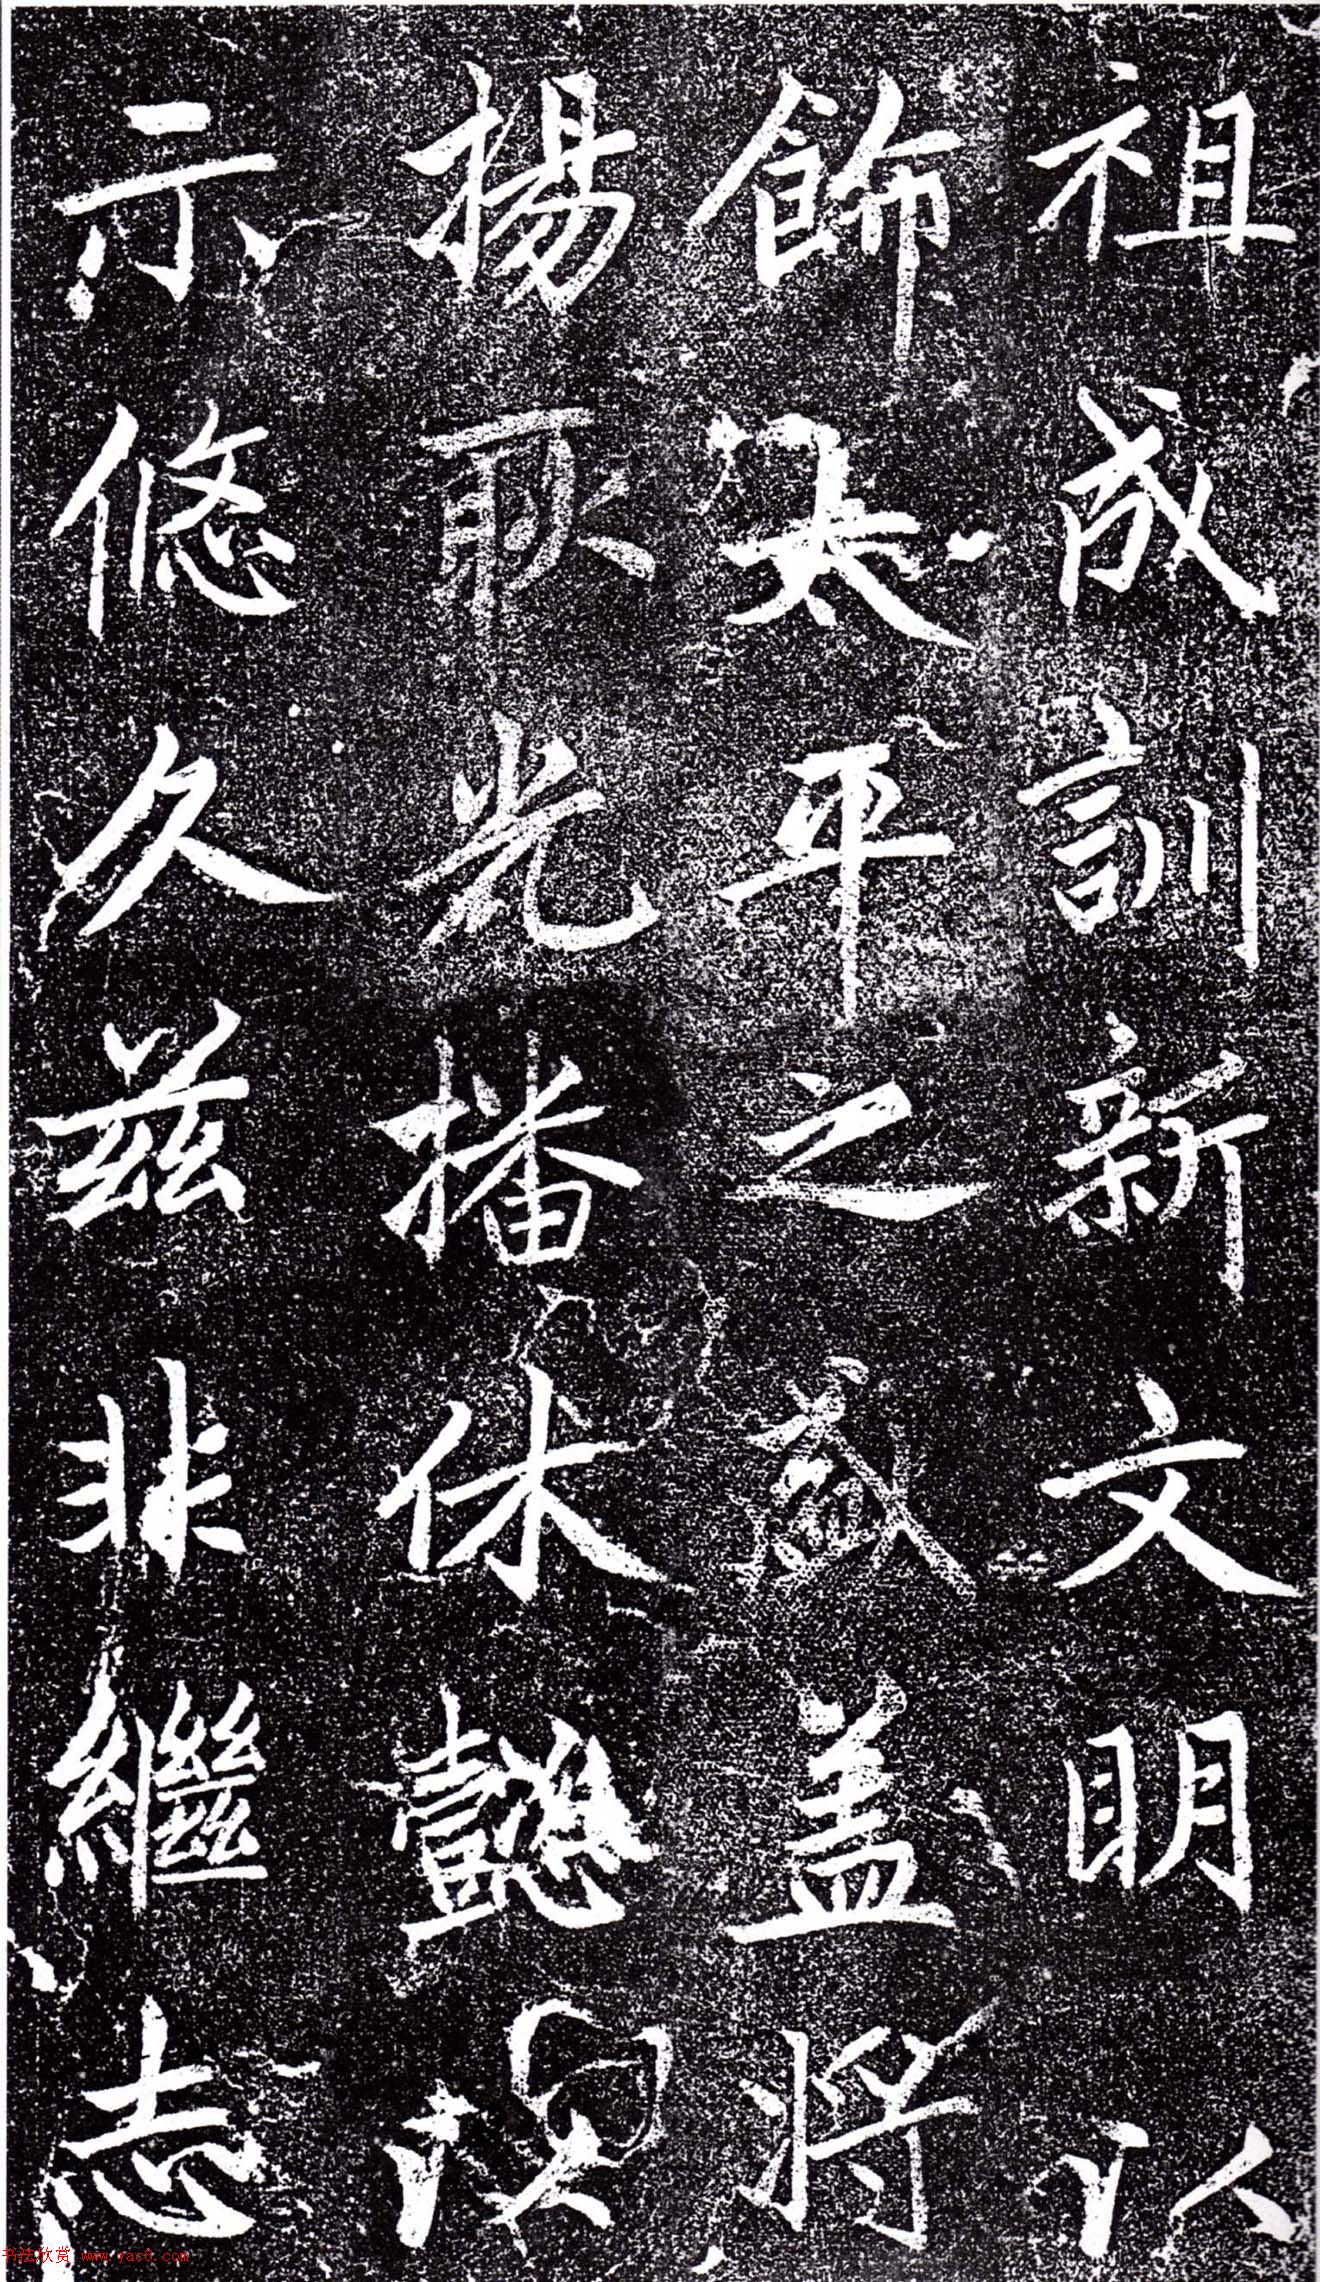 祖成訓新文明以
飾太平之盛蓋將
揚耿光播休懿
示悠久茲非繼志
书法欣赏 www.yac8.com